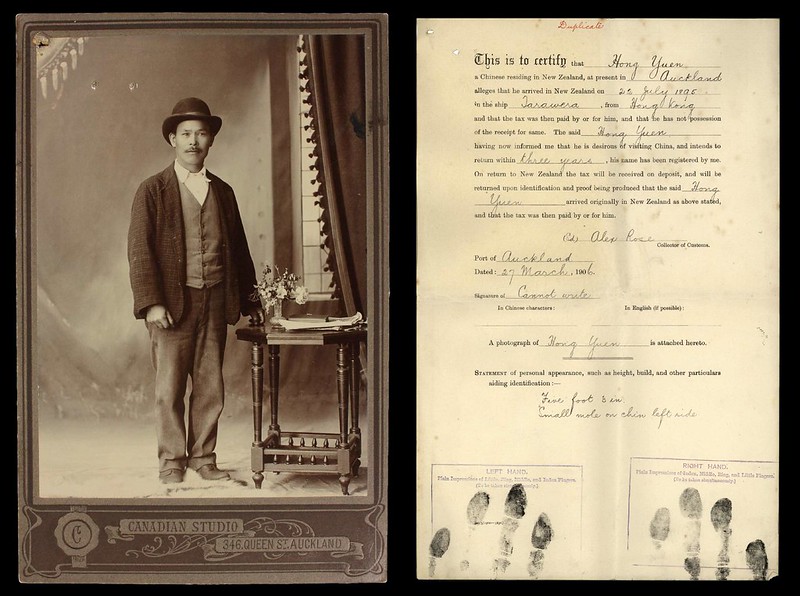 C
CANADIAN STUDIO
346, QUEEN ST. AUCKLAND.
Duplicate
This is to certify that Hong Yuen
a Chinese residing in New Zealand, at present in Auckland
alleges that he arrived in New Zealand on 22 July 1895
in the ship Tarawera, from Hong Kong
and that the tax was then paid by or for him, and that he has not possession
of the receipt for same. The said Hong Yuen
having now informed me that he is desirous of visiting China, and intends to
return within three years, his name has been registered by me.
On return to New Zealand the tax will be received on deposit, and will be
returned upon identification and proof being produced that the said Hong
Yuen arrived originally in New Zealand as above stated,
and that the tax was then paid by or for him.
Alex Rose
Collector of Customs.
Port of Auckland
Dated: 27 March, 1906.
Signature of Cannot write
In Chinese characters: In English (if possible):
A photograph of Hong Yuen is attached hereto.
STATEMENT of personal appearance, such as height, build, and other particulars
aiding identification:—
Five foot 3 in.
Small mole on chin left side
LEFT HAND.
Plain Impressions of Little, Ring, Middle, and Index Fingers.
(To be taken simultaneously.)
RIGHT HAND.
Plain Impressions of Index, Middle, Ring, and Little Fingers.
(To be taken simultaneously.)